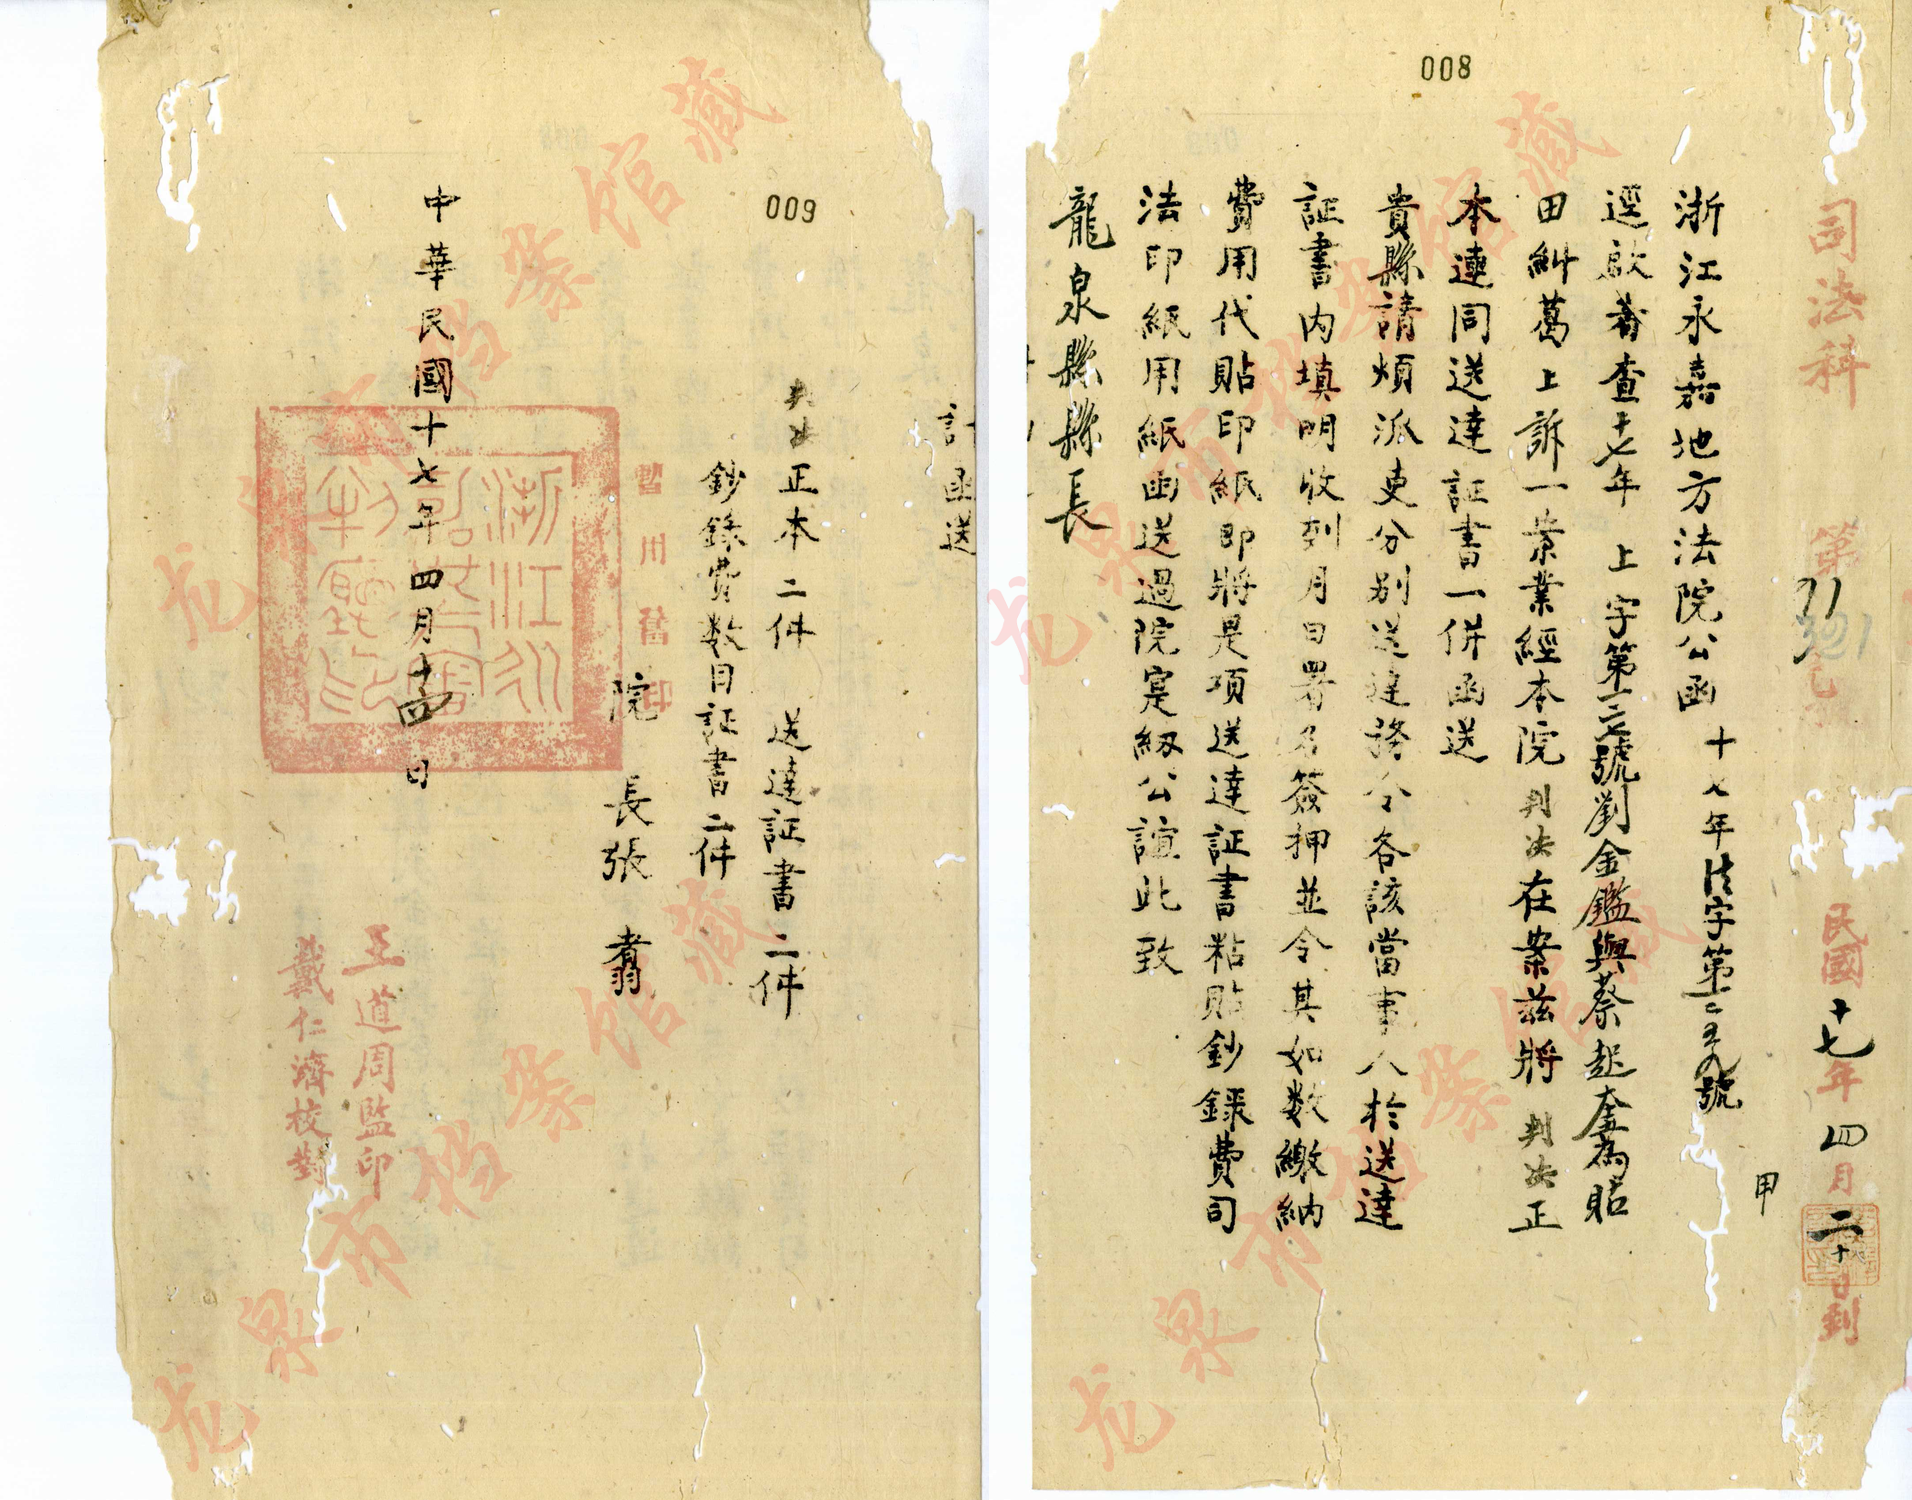 008
司法科
第
民國十七年四月二十日到
甲
浙江永嘉地方法院公函 十七年法字第
逕啟者查十七年 上字第 號劉金鑑與蔡起奎為貼
田糾葛上訴一案業經本院判决在案茲將判决正
本連同送達証書一併函送
貴縣請煩派吏分别送達務令各該當事人於送達
証書内填明收到月日署名簽押並令其如数繳納
費用代貼印紙即將是項送達証書粘貼鈔錄費司
法印紙用紙函送過院寔紉公誼此致
龍泉縣縣長
009
計函送
判决正本二件 送達証書二件
鈔錄費数目証書二件
院長張
中華民國十七年四月十四日
王道周監印
戴仁濟校對
龙泉市档案馆藏
龙泉市档案馆藏
龙泉市档案馆藏
龙泉市档案馆藏